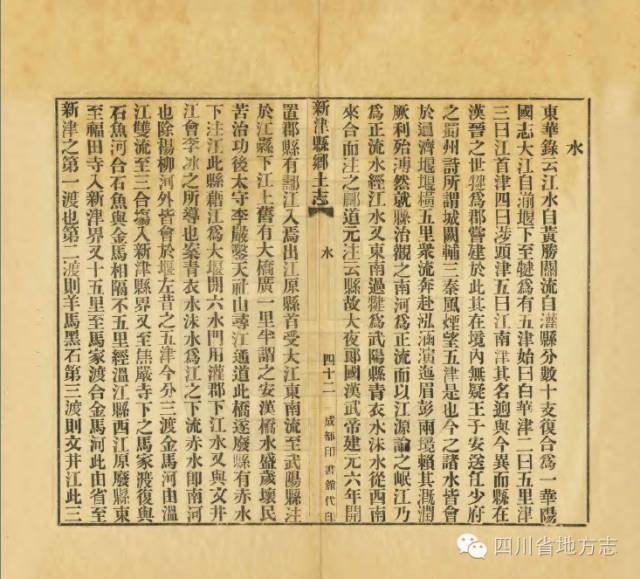 水
東華錄云江水自黃勝關流自灌縣分數十支復合爲一華陽
國志大江自湔堰下至犍爲有五津始曰白華津二曰五里津
三曰江首津四曰涉頭津五曰江南津其名迥與今異而縣在
漢晉之世犍爲郡嘗建於此其在境內無疑王子安送江少府
之蜀州詩所謂城闕輔三秦風煙望五津是也今之諸水皆會
於逥濟堰堰橫五里衆流奔赴泓涵演迤眉彭兩境賴其漑潤
厥利殆溥然就縣治觀之南河爲正流而以江源論之岷江乃
爲正流水經江水又東南過犍爲武陽縣青衣水沬水從西南
來合而注之酈道元注云縣故大夜郞國漢武帝建元六年開
新津縣鄉土志 水 四十二 成都印書館代印
置郡縣有江入焉出江原縣首受大江東南流至武陽縣注
於江縣下江上舊有大橋廣一里半謂之安漢橋水盛歲壞民
苦治功後太守李嚴鑿天社山尋江通道此橋遂廢縣有赤水
下注江此縣藉江爲大堰開六水門用灌郡下江水又與文井
江會李冰之所導也案青衣水沬水爲江之下流赤水卽南河
也除楊柳河外皆會於堰左昔之五津今分三渡金馬河由溫
江雙流至三合塲入新津縣界又至焦嚴寺下之馬家渡復與
石魚河合石魚與金馬相隔不五里經溫江縣西江原廢縣東
至福田寺入新津界又十五里至馬家渡合金馬河此由省至
新津之第一渡也第二渡則羊馬黑石第三渡則文井江此三
四川省地方志